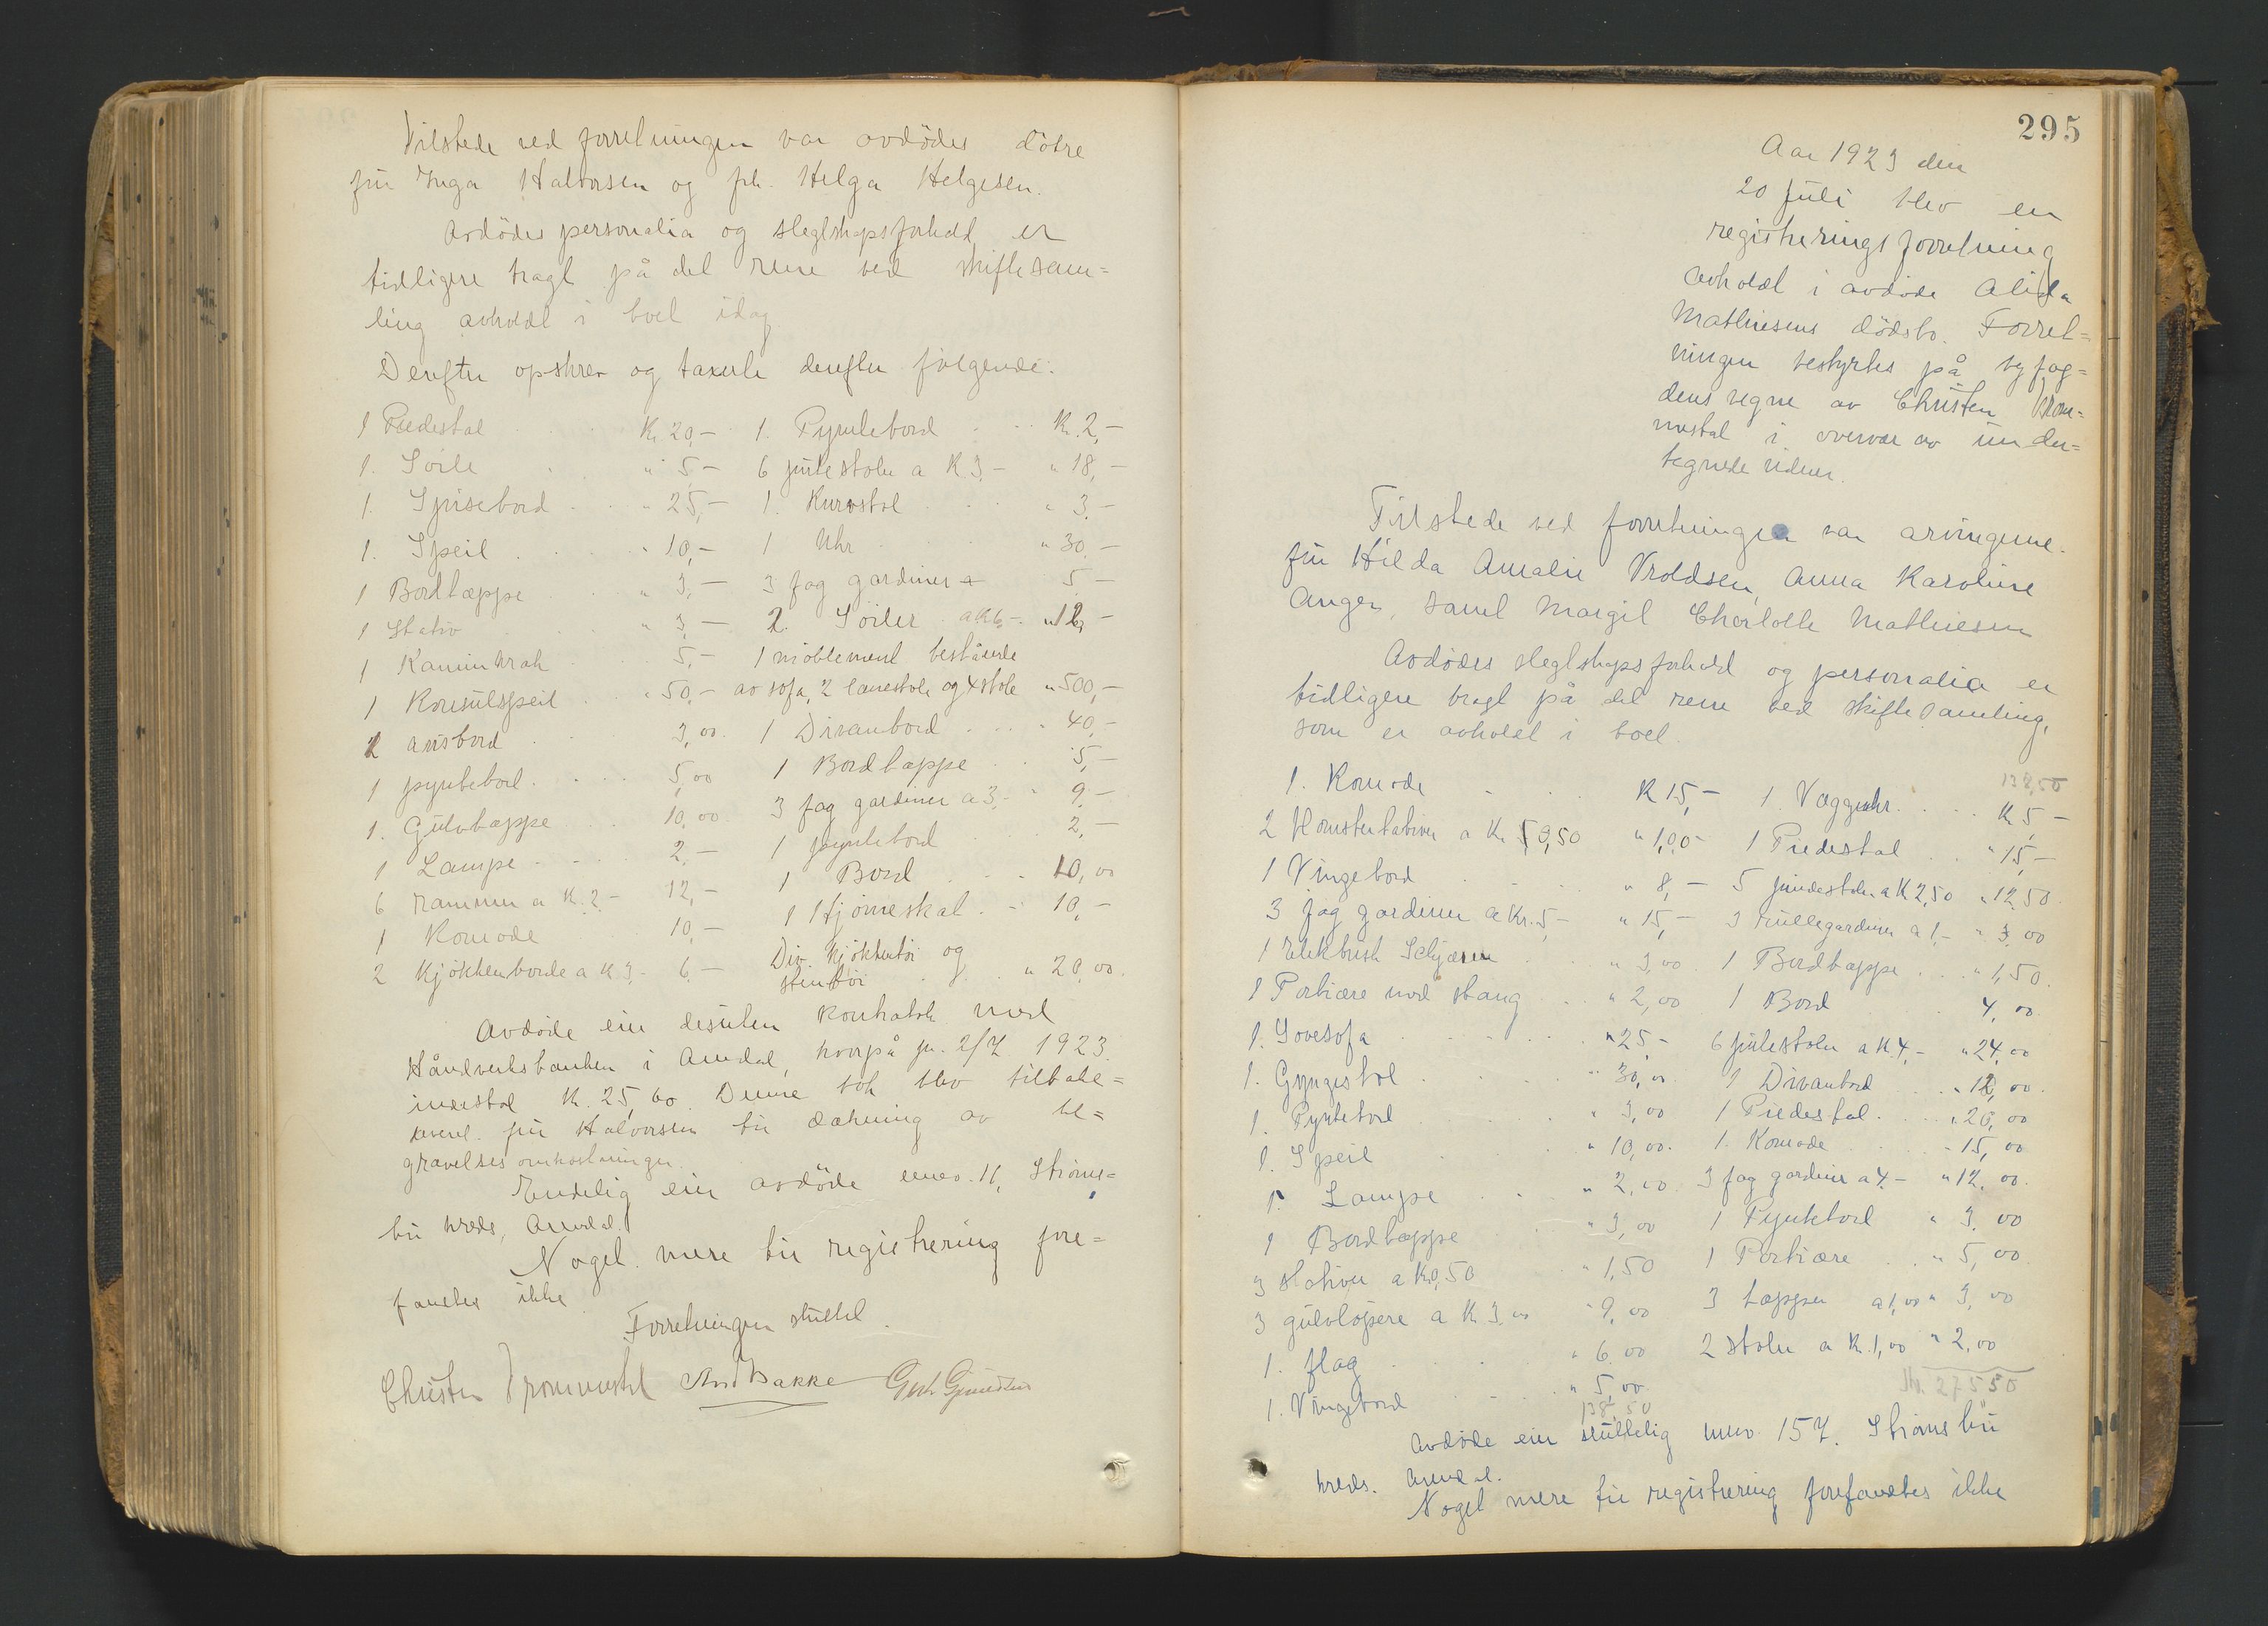 Tilstede ved forretningen var avdødes døtre
frü Inga Halvorsen og frk. Helga Helgesen.
Avdødes personalia og slegtskapsforhold er
tidligere bragt på det rene ved skiftesam=
ling avholdt i boet idag
Derefter opskrev og taxerte derefter følgende:
1 Piedestal Kr. 20,- 1. Pyntebord Kr. 2,-
1. Søile " 5,- 6 pinestoler a K 3,- " 18,-
1. Spisebord " 25,- 1. Kurvstol " 3,-
1. Speil " 10,- 1 Uhr " 30,-
1 Bordtæppe " 3,- 3 fag gardiner 5 -
1 Stativ " 3,- 2. Søiler a K 6,- " 12,-
1 Kaminkrak 5,- 1 møblement bestående
1 Konsulspeil " 50,- av sofa, 2 lænestole og 4 stole " 500,-
1 avisbord 3,00 1 Divanbord 40,-
1 pyntebord 5,00 1 Bordtæppe 5,-
1. Gülvtæppe 10,00 3 fag gardiner a 3,- 9,-
1 Lampe 2,- 1 pyntebord 2,-
6 rammer a K. 2,- 12,- 1 Bord 10,00
1 Komode 10,- 1 Hjørneskab 10,-
2 Kjøkkenborde a K 3,- 6,- Div. kjøkkentøi og
stentøi " 20,00
Avdøde eier desuten kontrabok med
Håndverksbanken i Arendal, hvorpå pr. 2/7 1923
innestod K. 25,60 Denne bok blev tilbake=
leveret frü Halvorsen til dækning av be=
gravelsesomkostninger
Endelig eier avdøde unev. 11, Strøms=
bu kreds, Arendal.
Noget mere til registrering fore=
fandtes ikke
Forretningen sluttet.
Christen Trommestad And Bakke
295
Aar 1923 den
20 Juli blev en
registreringsforretning
avholdt i avdøde Alida
Mathiesens dødsbo. Forret=
ningen bestyrtes på byfog=
dens vegne av Christen Trom=
mestad i overvær av under=
tegnede vidner.
Tilstede ved forretningen var arvingerne.
frü Hilda Amalie Troldsen, Anna Karoline
Anger, samt Margit Charlotte Mathiesen
Avdødes slegtskapsforhold og personalia er
tidligere bragt på det rene ved skiftesamling,
som er avholdt i boet.
138,50
1. Komode K 15,- 1 Væggeuhr K 5,-
2 Blomsterstativer a Kr 0,50 " 1,00 - 1 Piedestal " 15,-
1 Vingebord " 8,- 5 pindestoler a K 2,50 " 12,50
3 fag gardiner a Kr. 5,- " 15,- 3 rüllegardiner a 1,- " 3,00
1 Elektrisk Schjærm " 3,00 1 Bordtæppe " 1,50
1 Portiære med stang " 2,00 1 Bord 4,00
1. Sovesofa " 25,- 6 pinestoler a K 4,- " 24,00
1. Gyngestol " 30,00 1 Divanbord " 12,00
1. Pyntebord " 3,00 1 Piedestal " 20,00
1. Speil " 10,00 1. Komode " 15,00
1. Lampe " 2,00 3 fag gardiner a 4,- " 12,00
1 Bordtæppe " 3,00 1 Pyntebord " 3,00
3 Stativer a K 0,50 " 1,50 1 Portiære " 5,00
3 gülvløpere a K 3,00 " 9,00 3 tæpper a 1,00 " 3,00
1. flag " 6,00 2 stoler a K. 1,00 " 2,00
1. Vingebord " 5,00 Kr. 275 50
138,50
Avdøde eier sluttelig unev 157. Strømsbü
kreds. Arendal.
Noget mere til registrering forefandtes ikke